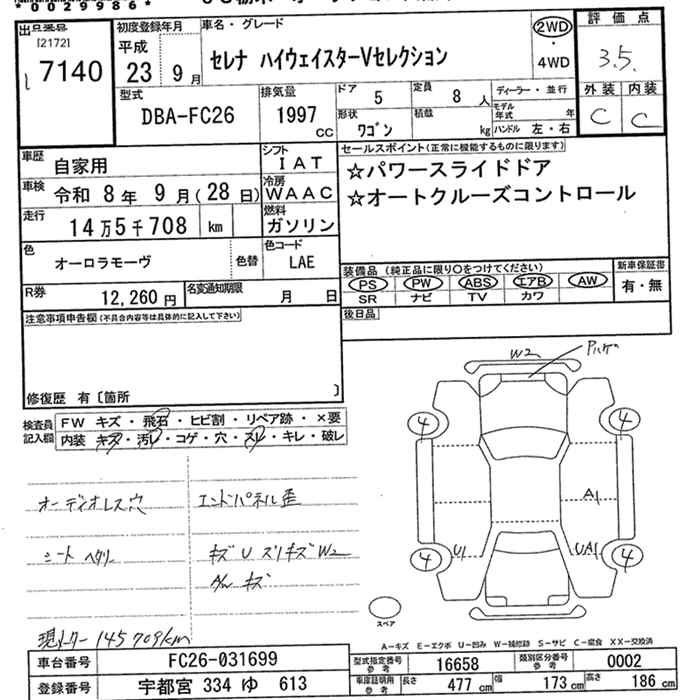 *0029986*
出品番号 初度登録年月 車名・グレード 2WD 評価点
[2172] 平成 セレナ ハイウェイスターVセレクション 4WD 3.5
7140 23 9月
型式 排気量 ドア 定員 ディーラー・並行 外装 内装
DBA-FC26 1997 cc 5 8人 モデル年式 年 C C
形状 ワゴン 積載 kg ハンドル 左・右
車歴 自家用 シフト IAT セールスポイント(正常に機能するものに限ります)
☆パワースライドドア
車検 令和 8年 9月(28日) 冷房 WAAC ☆オートクルーズコントロール
走行 14万5千708 km 燃料 ガソリン
色 オーロラモーヴ 色替 色コード LAE
装備品 (純正品に限り○をつけてください) 新車保証書
PS PW ABS エアB AW 有・無
R券 12,260円 名変通知期限 月 日 SR ナビ TV カワ
注意事項申告欄(不具合内容等は具体的に記入して下さい) 後日品
修復歴 有〔箇所 〕
検査員記入欄 FW キズ・飛石・ヒビ割・リペア跡・×要
内装 キズ・汚レ・コゲ・穴・スレ・キレ・破レ
オーディオレス穴 エンドパネル歪
シート ヘタリ キズ U スリキズ W2
A/w キズ
現メーター 145709km
W2
4 4
A1
U1 UA1
4 4
スペア
A-キズ E-エクボ U-凹み W-補修跡 S-サビ C-腐食 XX-交換済
車台番号 FC26-031699 型式指定番号 参考 16658 類別区分番号 参考 0002
登録番号 宇都宮 334 ゆ 613 車庫証明用 参考 長さ 477cm 幅 173cm 高さ 186cm